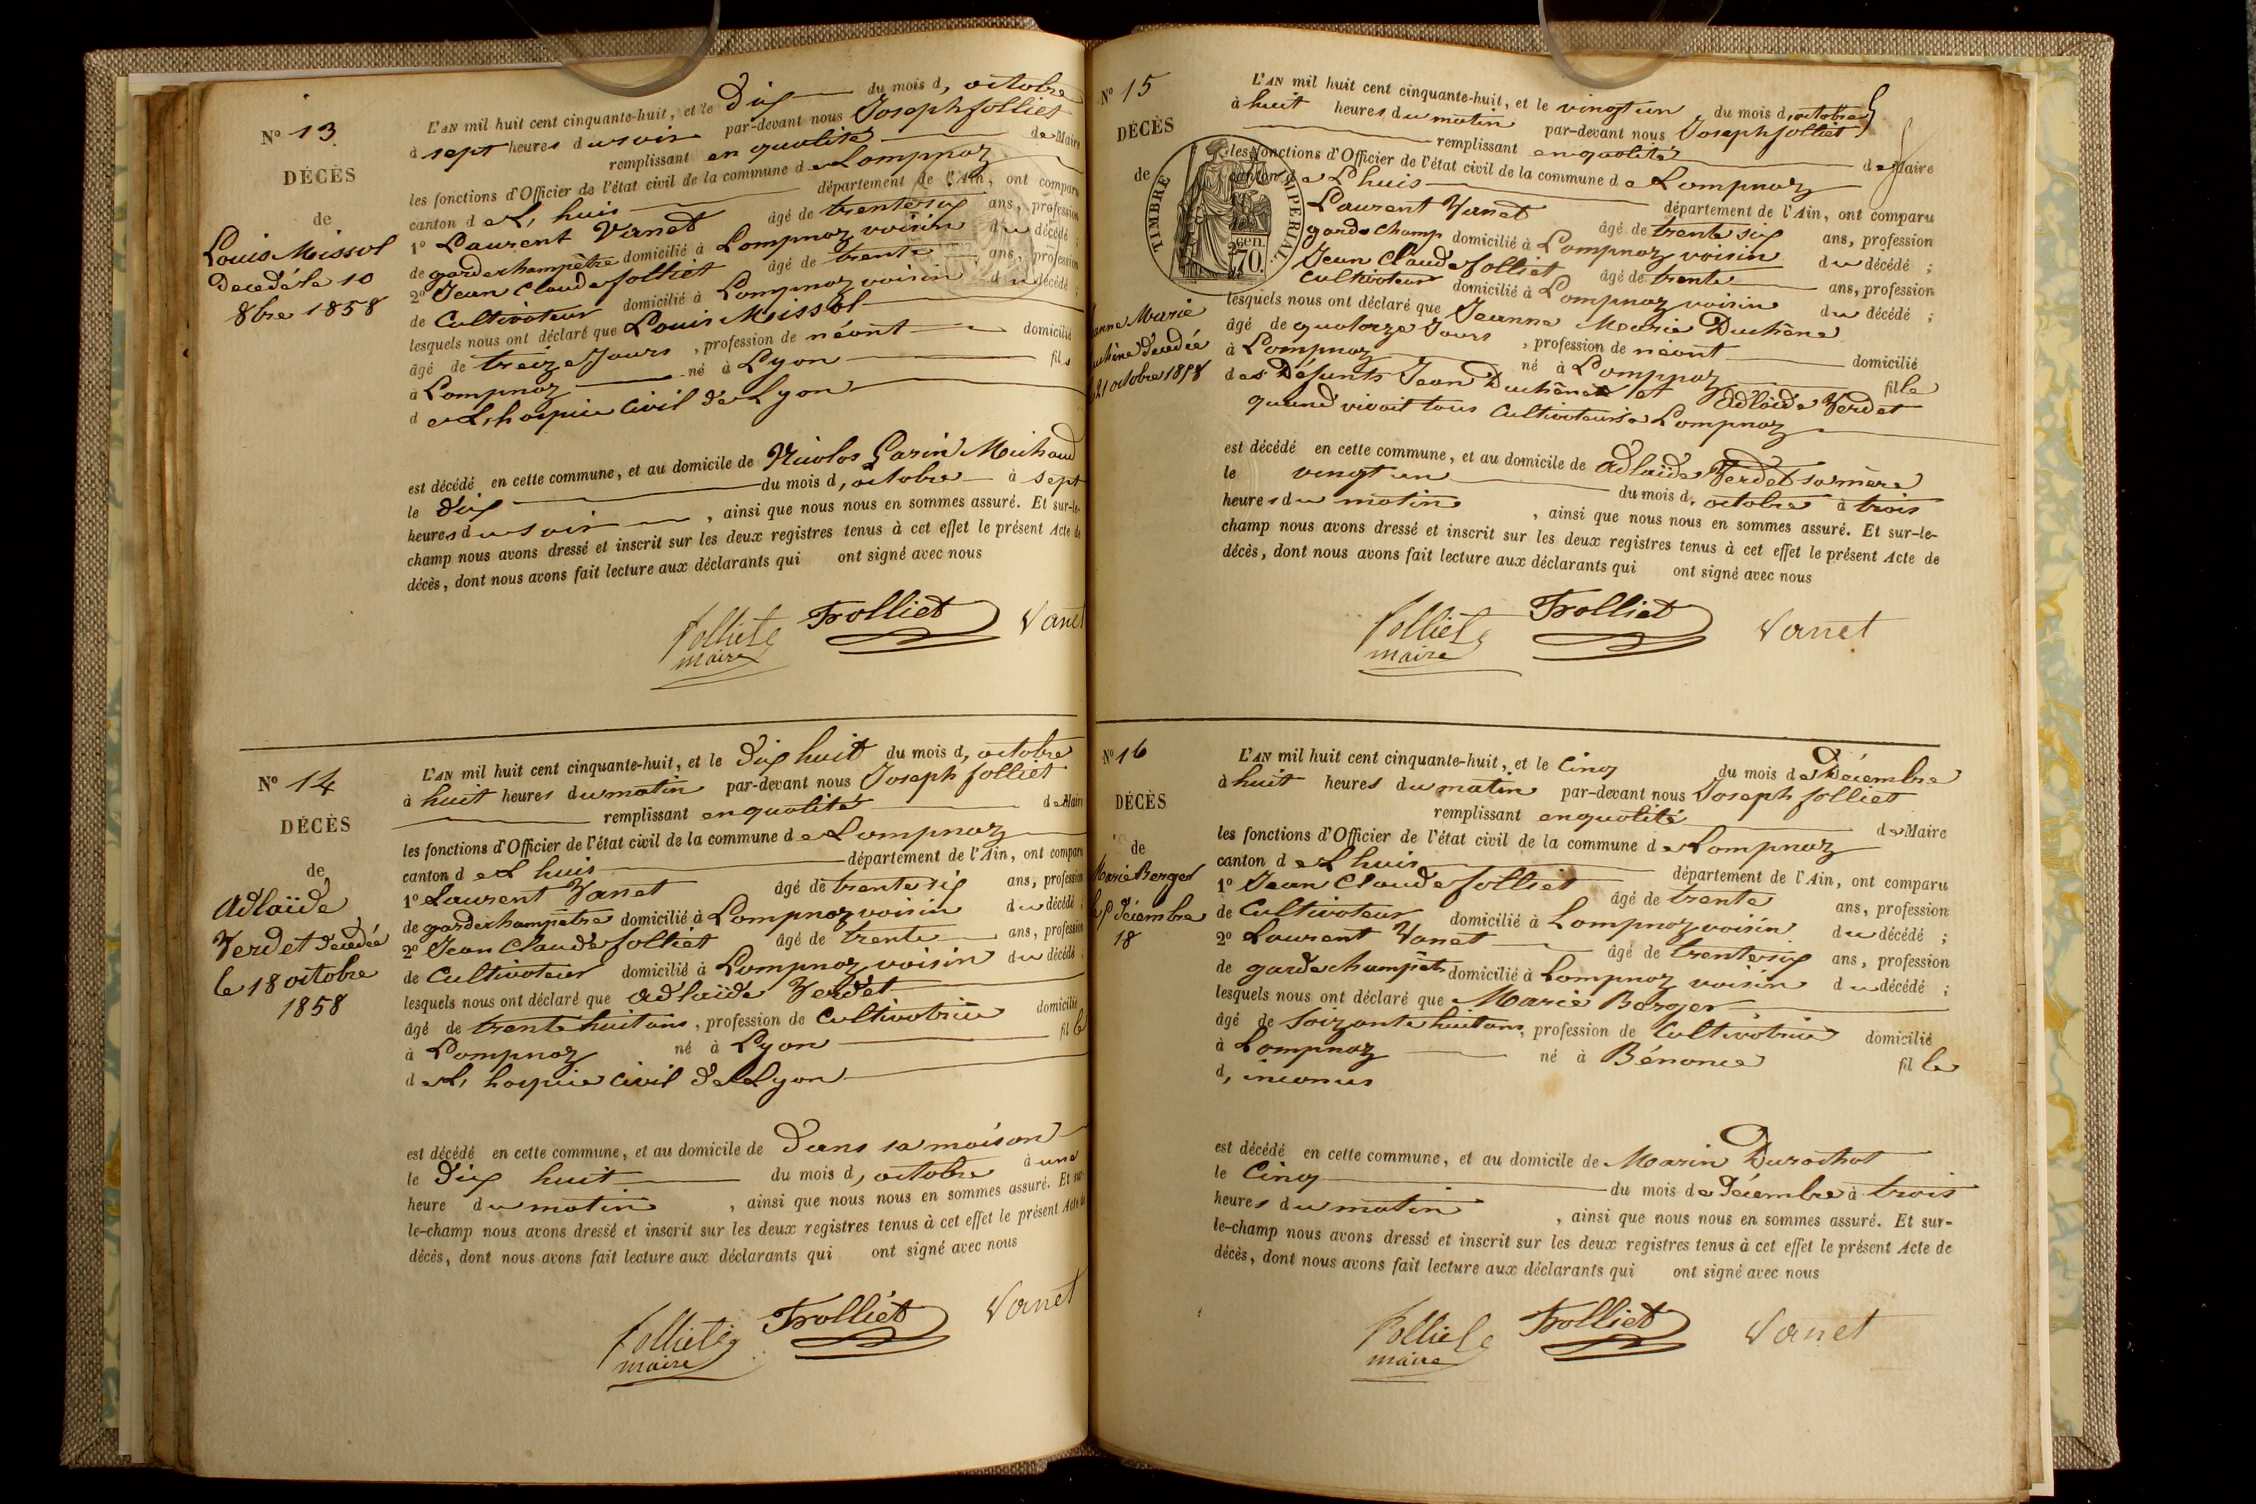 N° 13
DÉCÈS
de
Louis Moissol
Decedé le 10
8bre 1858
L'AN mil huit cent cinquante-huit, et le dix du mois d, octobre
à sept heures du soir par-devant nous Joseph folliet
remplissant en qualité de Maire
les fonctions d'Officier de l'état civil de la commune de Lompnaz
canton de L, huis département de l'Ain, ont comparu
1° Laurent Vanet âgé de trente six ans, profession
de garde champêtre domicilié à Lompnaz voisin du décédé ;
2° Jean Claude folliet âgé de trente ans, profession
de Cultivateur domicilié à Lompnaz voisin du décédé ;
lesquels nous ont déclaré que Louis Moissol
âgé de treize Jours , profession de néant domicilié
à Lompnaz né à Lyon fils
de L, hospice Civil de Lyon
est décédé en cette commune, et au domicile de Nicolas Garin Michaud
le dix du mois d, octobre à sept
heures du soir , ainsi que nous nous en sommes assuré. Et sur-le-
champ nous avons dressé et inscrit sur les deux registres tenus à cet effet le présent Acte de
décès, dont nous avons fait lecture aux déclarants qui ont signé avec nous
folliet
maire
Trolliet
Vanet
N° 14
DÉCÈS
de
Adlaïde
Verdet decedée
le 18 octobre
1858
L'AN mil huit cent cinquante-huit, et le dix huit du mois d, octobre
à huit heures du matin par-devant nous Joseph folliet
remplissant en qualité de Maire
les fonctions d'Officier de l'état civil de la commune de Lompnaz
canton de L huis département de l'Ain, ont comparu
1° Laurent Vanet âgé de trente six ans, profession
de garde champêtre domicilié à Lompnaz voisin du décédé ;
2° Jean Claude folliet âgé de trente ans, profession
de Cultivateur domicilié à Lompnaz voisin du décédé ;
lesquels nous ont déclaré que adlaïde Verdet
âgé de trente huit ans, profession de Cultivatrice domicilié
à Lompnaz né à Lyon fille
de L, hospice Civil de Lyon
est décédé en cette commune, et au domicile de dans sa maison
le dix huit du mois d, octobre à une
heure du matin , ainsi que nous nous en sommes assuré. Et sur-
le-champ nous avons dressé et inscrit sur les deux registres tenus à cet effet le présent Acte de
décès, dont nous avons fait lecture aux déclarants qui ont signé avec nous
folliet
maire
Trolliet
Vanet
N° 15
DÉCÈS
de
TIMBRE IMPERIAL
70
cen.
anne Marie
uchêne decedée
21 octobre 1858
L'AN mil huit cent cinquante-huit, et le vingt un du mois d, octobre
à huit heures du matin par-devant nous Joseph folliet
remplissant en qualité de Maire
les fonctions d'Officier de l'état civil de la commune de Lompnaz
canton de Lhuis département de l'Ain, ont comparu
Laurent Vanet âgé de trente six ans, profession
garde champ domicilié à Lompnaz voisin du décédé ;
Jean Claude folliet âgé de trente ans, profession
Cultivateur domicilié à Lompnaz voisin du décédé ;
lesquels nous ont déclaré que Jeanne Marie Duchêne
âgé de quatorze Jours , profession de néant domicilié
à Lompnaz né à Lompnaz fille
des Défunts Jean Duchêne et Adlaïde Verdet
quand vivait tous Cultivateurs a Lompnaz
est décédé en cette commune, et au domicile de adlaïde Verdet sa mère
le vingt un du mois d, octobre à trois
heures du matin , ainsi que nous nous en sommes assuré. Et sur-le-
champ nous avons dressé et inscrit sur les deux registres tenus à cet effet le présent Acte de
décès, dont nous avons fait lecture aux déclarants qui ont signé avec nous
folliet
maire
Trolliet
Vanet
N° 16
DÉCÈS
de
Marie Berger
le 5 décembre
18
L'AN mil huit cent cinquante-huit, et le Cinq du mois de Décembre
à huit heures du matin par-devant nous Joseph folliet
remplissant en qualité de Maire
les fonctions d'Officier de l'état civil de la commune de Lompnaz
canton de Lhuis département de l'Ain, ont comparu
1° Jean Claude folliet âgé de trente ans, profession
de Cultivateur domicilié à Lompnaz voisin du décédé ;
2° Laurent Vanet âgé de trente six ans, profession
de garde champêtre domicilié à Lompnaz voisin du décédé ;
lesquels nous ont déclaré que Marie Berger
âgé de Soizante huit ans, profession de Cultivatrice domicilié
à Lompnaz né à Bénonce fille
d, inconnus
est décédé en cette commune, et au domicile de Marin Durochat
le Cinq du mois de décembre à trois
heures du matin , ainsi que nous nous en sommes assuré. Et sur-
le-champ nous avons dressé et inscrit sur les deux registres tenus à cet effet le présent Acte de
décès, dont nous avons fait lecture aux déclarants qui ont signé avec nous
folliet
maire
Trolliet
Vanet